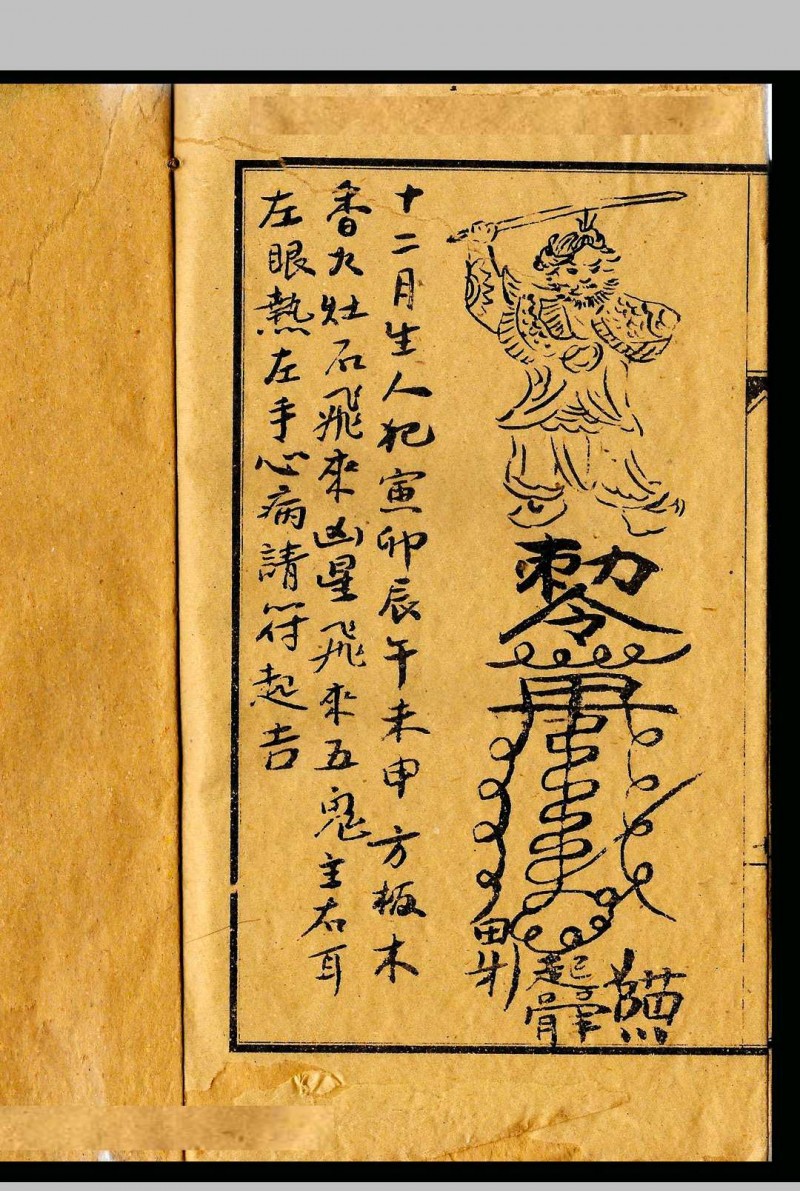 敕令
十二月生人犯寅卯辰午未申方板木
香火灶石飛來凶星飛來五鬼主右耳
左眼熱左手心病請符起吉